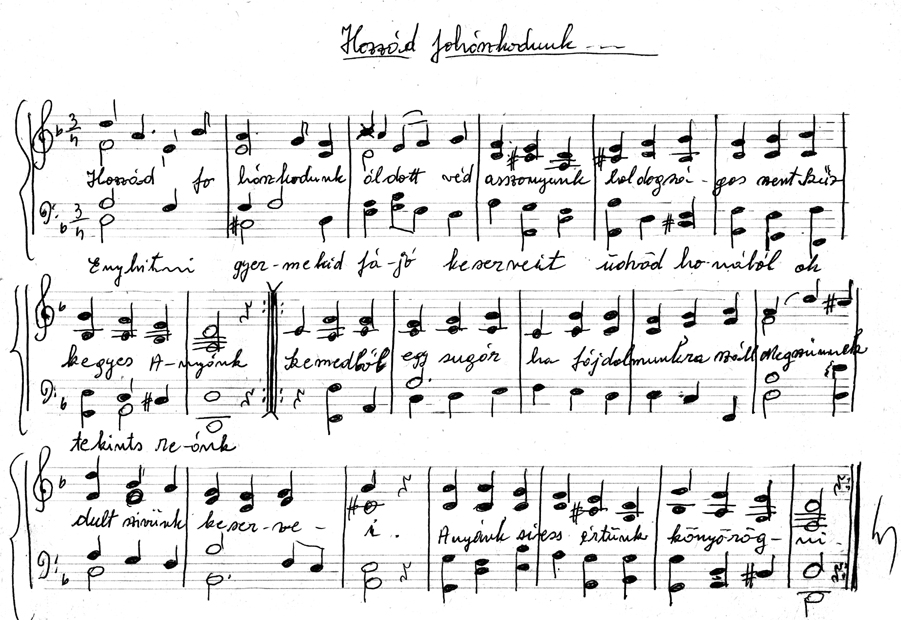 Hozzád fohászkodunk ---
3/4
Hozzád fo hászkodunk áldott véd asszonyunk boldogsá-gos szent Szűz
3/4
Enyhitni gyer-mekid fá-jó keserveit üdvöd ho-nából oh
kegyes A-nyánk kemedből egy sugár ha fájdalmunkra száll Megszünnek
tekints re-ánk
dult szivünk keser-ve-i. Anyánk siess értünk könyörög-ni.